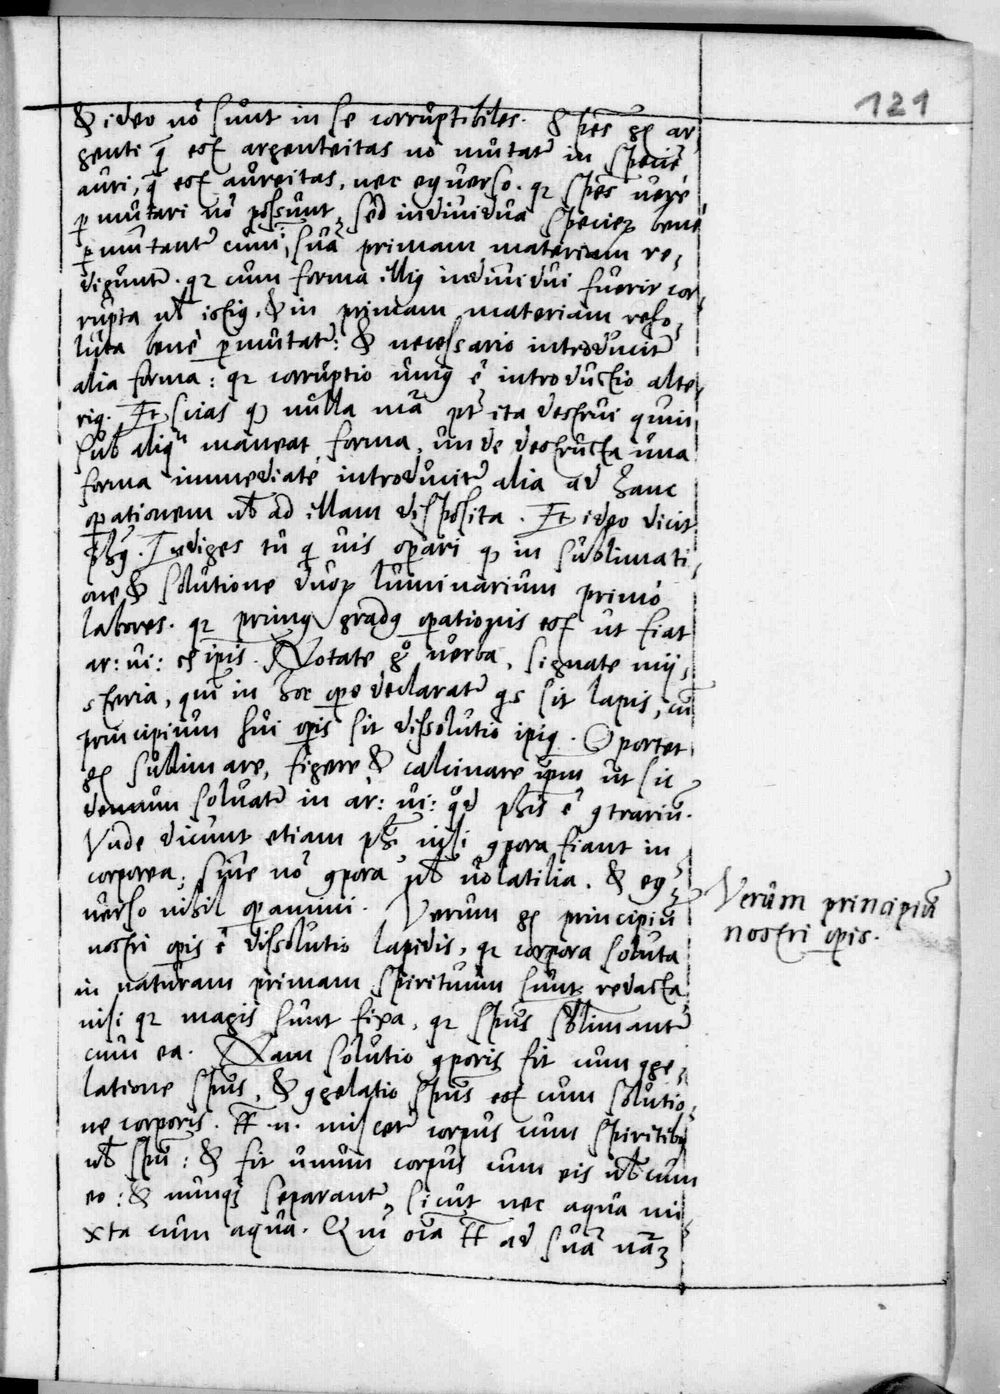 121
& ideo nō sunt in se corruptibiles. & spēs gͦ ar,
genti q̄ est argenteitas nō mutatr̄ in speciē
auri, q̄ est aureitas, nec eq̄uerso. qz spēs verè
ꝑmutari nō possunt, sed individua specierꝝ benè
ꝑmutantr̄ cum in suā primam materiam re,
diguntr̄. qz cum forma illiꝯ individui fuerit cor,
rupta ut istiꝯ, & in primam materiam reso,
luta benè ꝑmutatr̄: & necessario introducitr̄
alia forma: qz corruptio uniꝯ ē introductio alte,
riꝯ. Et scias qꝫ nulla mā pt̄ ita destrui quin
sub aliqͣ maneat forma, unde destructa una
forma immediatè introducitr̄ alia ad hanc
oꝑationem ut ad illam disposita. Et ideo dicit
phꝯ. Indiges tu qi vis oꝑari qꝫ in sublimati,
one & solutione duorꝝ luminarium primò
labores. qz primꝯ gradꝯ oꝑationis est ut fiat
ar: vi: ex ipīs. Notate gͦ verba, signate mij,
steria, qm̄ in hoc oꝑe declaratr̄ qͥs sit lapis, cū
principium hui oꝑis sit dissolutio ipiꝯ. Oportet
gͦ sublimare, figere & calcinare ipm̄ ut sic
demum solvatr̄ in ar: vi: qd phīs ē ꝯtrariū.
Unde dicunt etiam phī, nisi ꝯpora fiant in
corporea, sive nō ꝯpora ut volatilia. & eꝯ,
verso nihil oꝑamini. Verum gͦ principiū
nostri oꝑis ē dissolutio lapidis, qz corpora soluta
in naturam primam spirituum sunt redacta
nisi qz magis sunt fixa, qz spūs sublimantr̄
cum ea. Nam solutio ꝯporis fit cum ꝯge,
latione spūs, & ꝯgelatio spūs est cum solutio,
ne corporis. tt̄ .n. miscetr̄ corpus cum spiritibꝯ
ut spū: & fit unum corpus cum eis ut cum
eo: & nunqͣ separantr̄, sicut nec aqua mi,
xta cum aqua. Qm̄ oīa tt̄ ad suā nāꝫ
Verum principiū
nostri oꝑis.